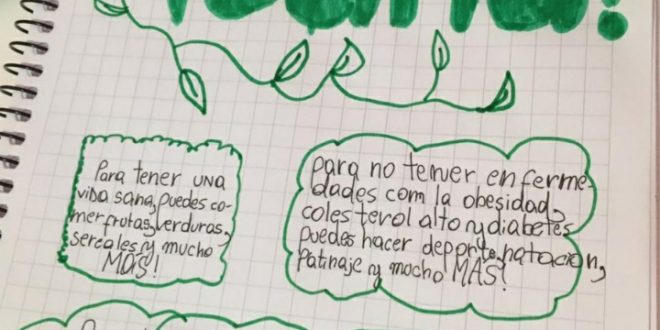 Para tener una
vida sana, puedes co-
mer frutas, verduras,
sereales y mucho
MÁS!
para no tener enferme-
dades com la obesidad,
colesterol alto y diabetes
puedes hacer deporte, natación,
Patinaje y mocho MÁS!